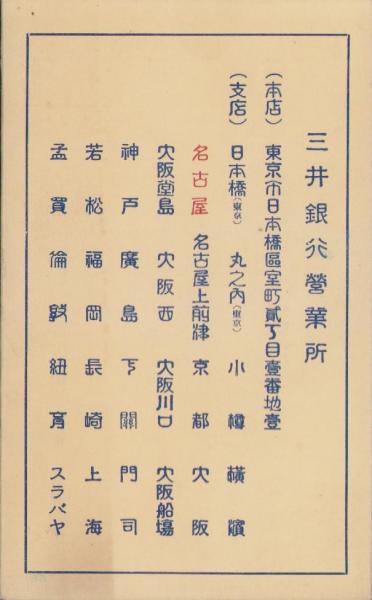 三井銀行營業所
（本店）東京市日本橋區室町貳丁目壹番地壹
（支店）日本橋（東京）　丸之内（東京）　小樽　橫濱
名古屋　名古屋上前津　京都　大阪
大阪堂島　大阪西　大阪川口　大阪船場
神戸　廣島　下關　門司
若松　福岡　長崎　上海
孟買　倫敦　紐育　スラバヤ